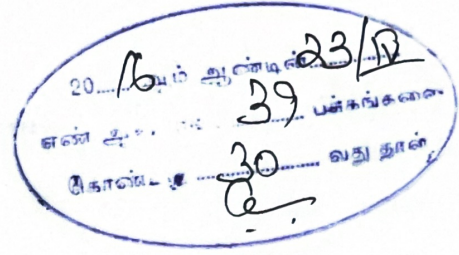 2016ஆம் ஆண்டின் 23/IV
எண் 39 பக்கங்களை
கொண்ட 30 வது தாள்